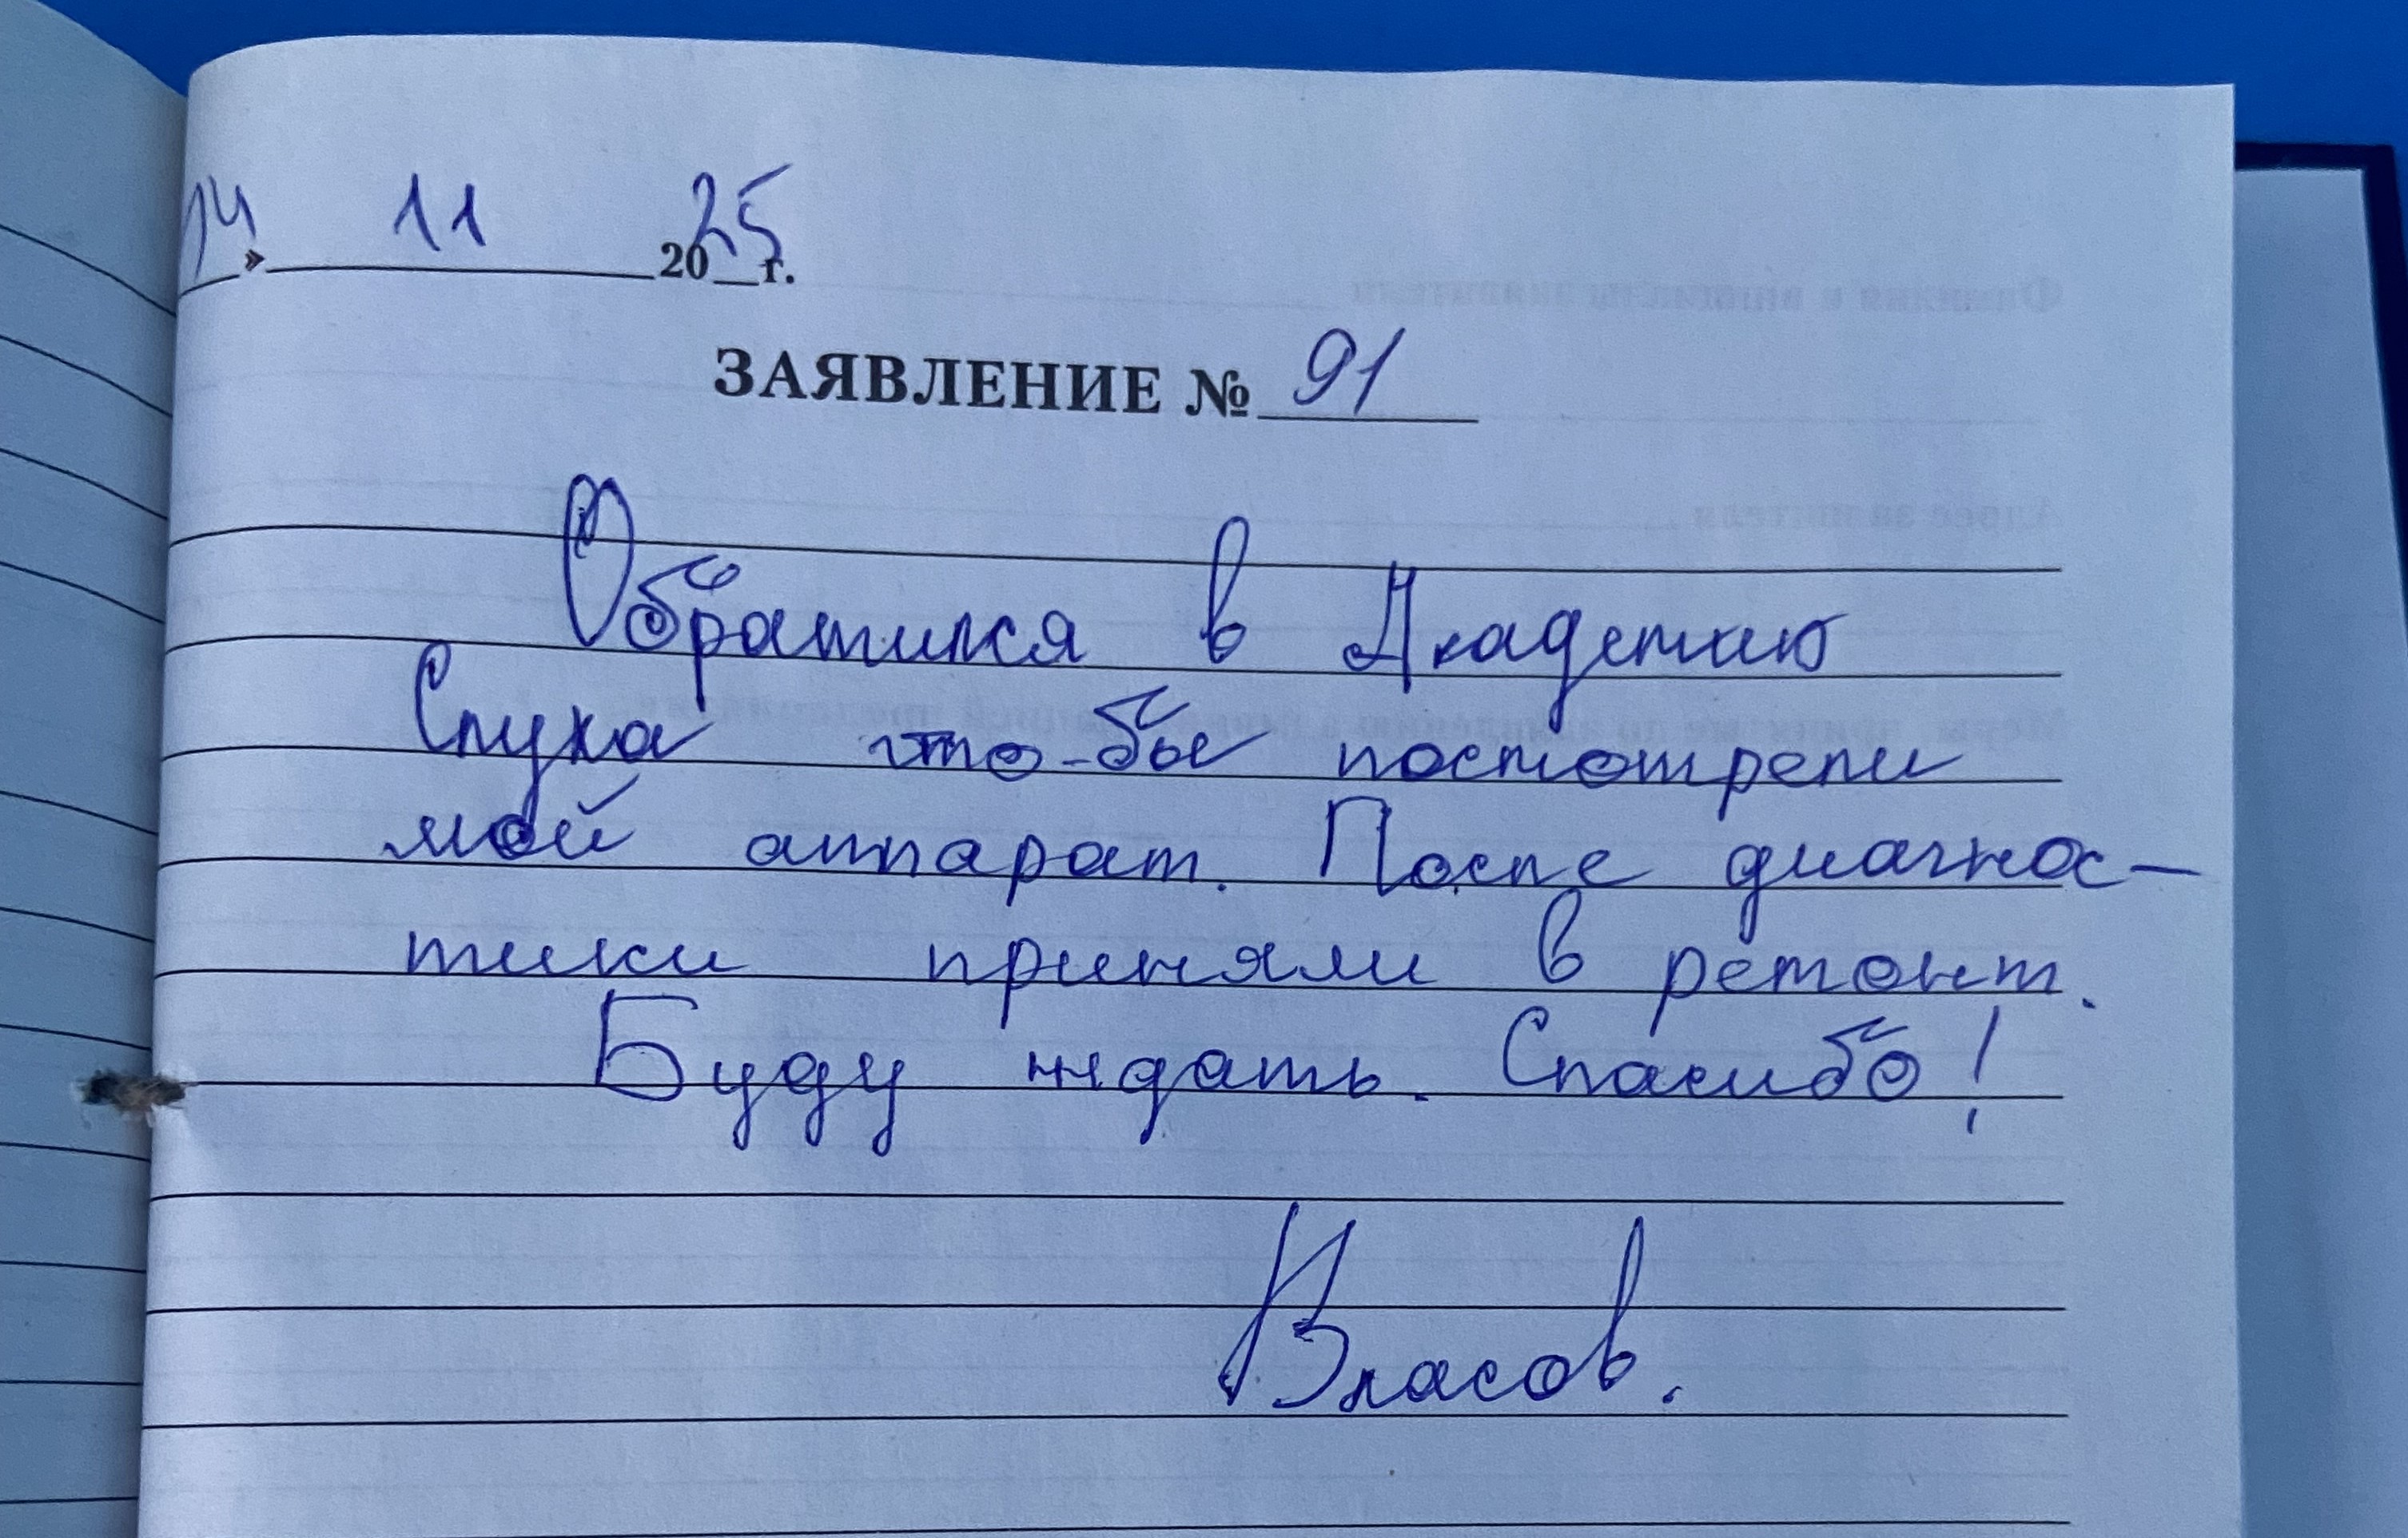 14» 11 2025г.
ЗАЯВЛЕНИЕ № 91
Обратился в Академию
Слуха что-бы посмотрели
мой аппарат. После диагнос-
тики приняли в ремонт.
Буду ждать. Спасибо!
Власов.